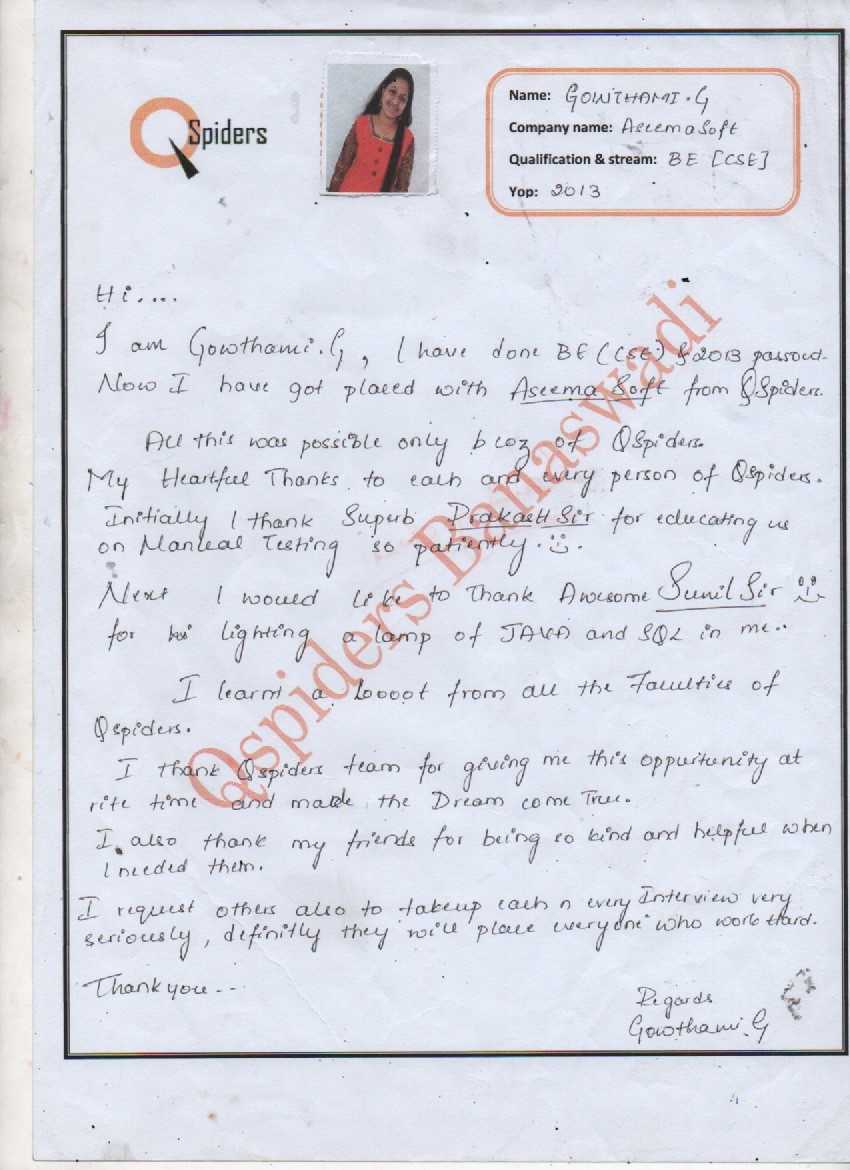 Spiders
Name: GOWTHAMI.G
Company name: AseemaSoft
Qualification & stream: BE [CSE]
Yop: 2013
Hi....
I am Gowthami.G, I have done BE (CSE) & 2013 passout.
Now I have got placed with Aseema Soft from QSpiders.
All this was possible only bcoz of QSpiders.
My Heartful Thanks to each and every person of Qspiders.
Initially I thank Superb Prakash Sir for educating us
on Manual Testing so patiently.
Next I would like to Thank Awesome Sunil Sir
for lighting a lamp of JAVA and SQL in me..
I learnt a Loooot from all the Faculties of
Qspiders.
I thank Qspiders team for giving me this oppurtunity at
rite time and made the Dream come True.
I also thank my friends for being so kind and helpful when
I needed them.
I request others also to takeup each n every Interview very
seriously, definitly they will place everyone who work Hard.
Thank you...
Regards
Gowthami.G
Qspiders Banaswadi